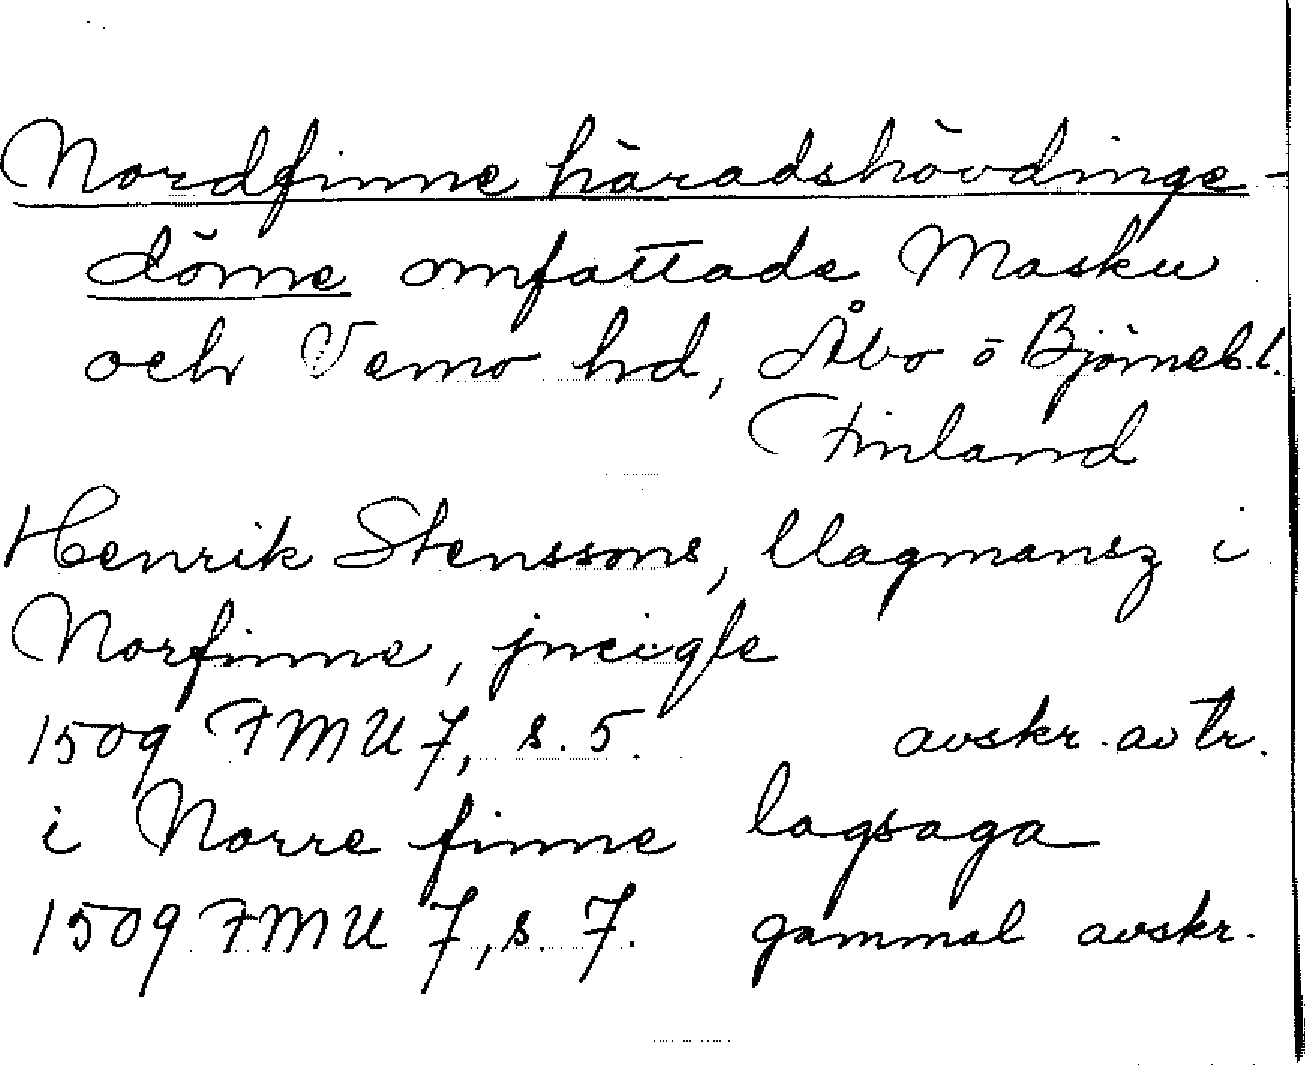 Nordfinne häradshövdinge-
döme omfattade Masku
och Vemo hd, Åbo o Björneb.l.
Finland
Henrik Stenssons, llagmansz i
Norfinne, jncigle
1509 FMU 7, s. 5. avskr. av tr.
i Norre finne lagsaga
1509 FMU 7, s. 7. gammal avskr.